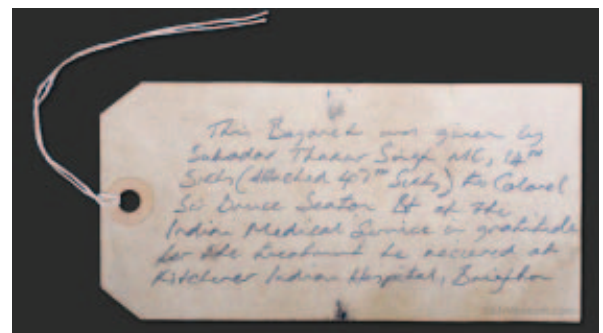 This Bayonet was given by
Subadar Thakur Singh MC, 14th
Sikhs (Attached 47th Sikhs) to Colonel
Sir Bruce Seaton Bt of the
Indian Medical Service in gratitude
for the treatment he recieved at
Kitchener Indian Hospital, Brighton